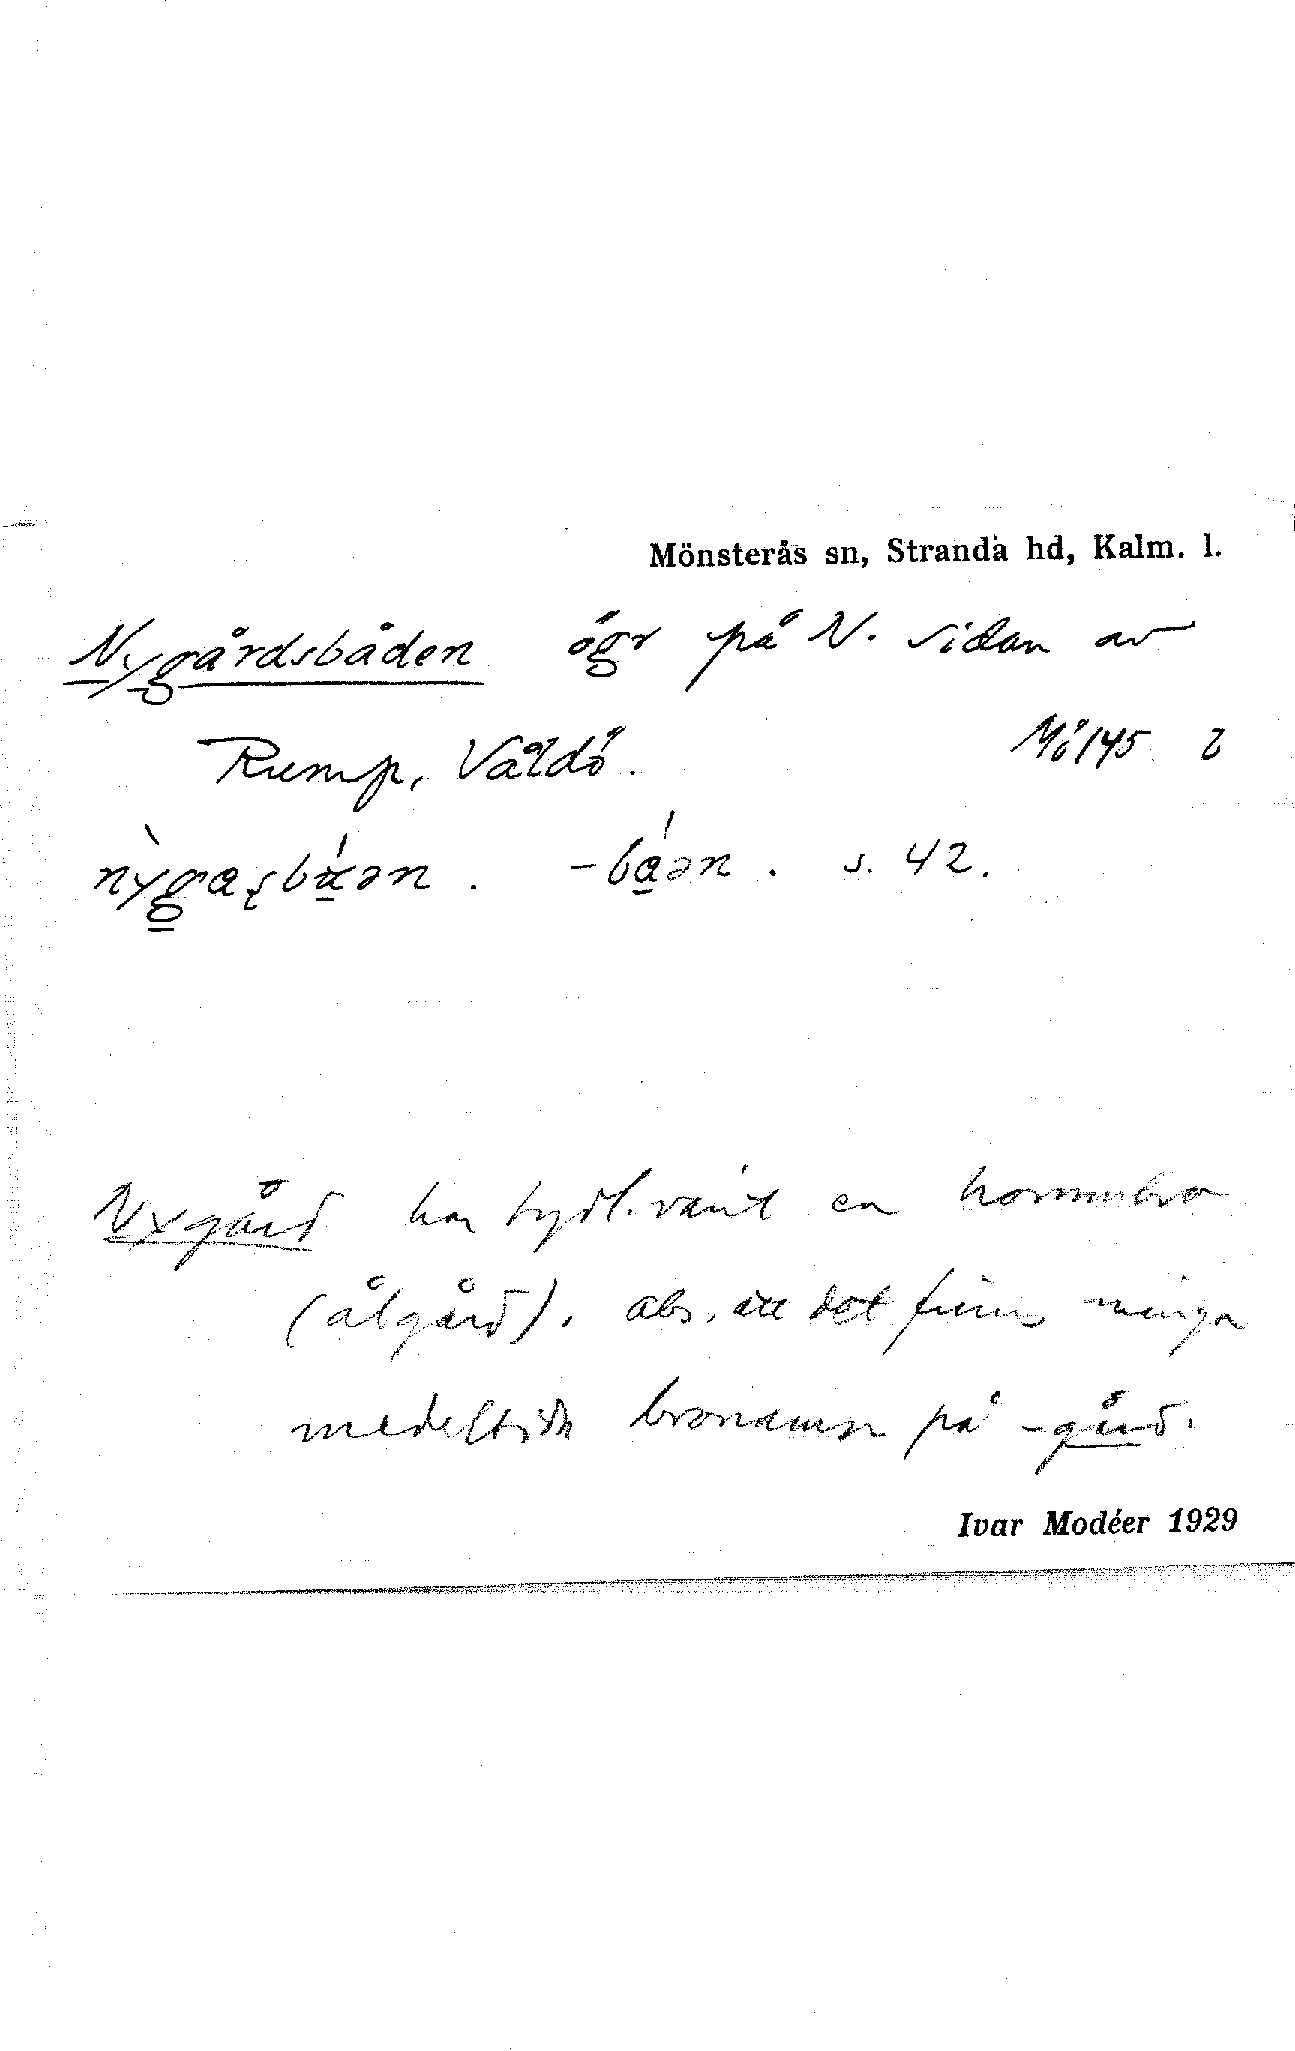 Mönsterås sn, Stranda hd, Kalm. l.
Nygårdsbåden ögr på N. sidan av
Rump, Valdö.
Mö 145
-båən. s. 42.
Nygård har tydl. varit en hommebro
(ålgård). Obs. att det finns många
på -gård.
Ivar Modéer 1929